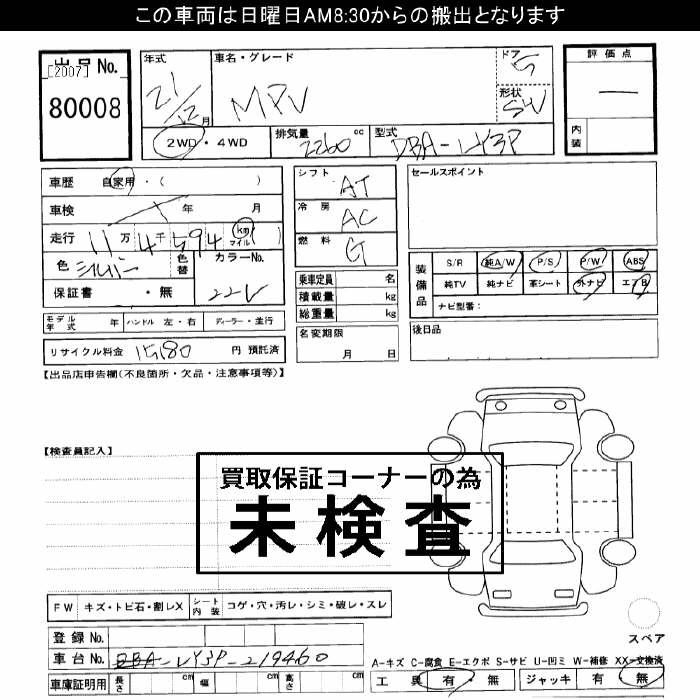 この車両は日曜日AM8:30からの搬出となります
出品No.
[2007]
80008
年式
21/12月
車名・グレード
MPV
ドア
5
形状
SW
2WD・4WD
排気量 2260 cc
型式 DBA-LY3P
評価点
—
内装
車歴 自家用・( )
車検 年 月
走行 11万4千594 km マイル
色 シルバー
色替
カラーNo.
22V
保証書 ・無
シフト AT
冷房 AC
燃料 G
乗車定員 名
積載量 kg
総重量 kg
セールスポイント
装備品
S/R 純A/W P/S P/W ABS
純TV 純ナビ 革シート 外ナビ エアB
ナビ型番:
モデル年式 年 ハンドル 左・右 ディーラー・並行
リサイクル料金 15180 円 預託済
名変期限
月 日
後日品
【出品店申告欄(不良箇所・欠品・注意事項等)】
【検査員記入】
買取保証コーナーの為
未検査
FW キズ・トビ石・割レX シート内装 コゲ・穴・汚レ・シミ・破レ・スレ
登録No.
車台No. DBA-LY3P-219460
車庫証明用 長さ cm 幅 cm 高さ cm
スペア
A-キズ C-腐食 E-エクボ S-サビ U-凹ミ W-補修 XX-交換済
工具 有・無 ジャッキ 有・無